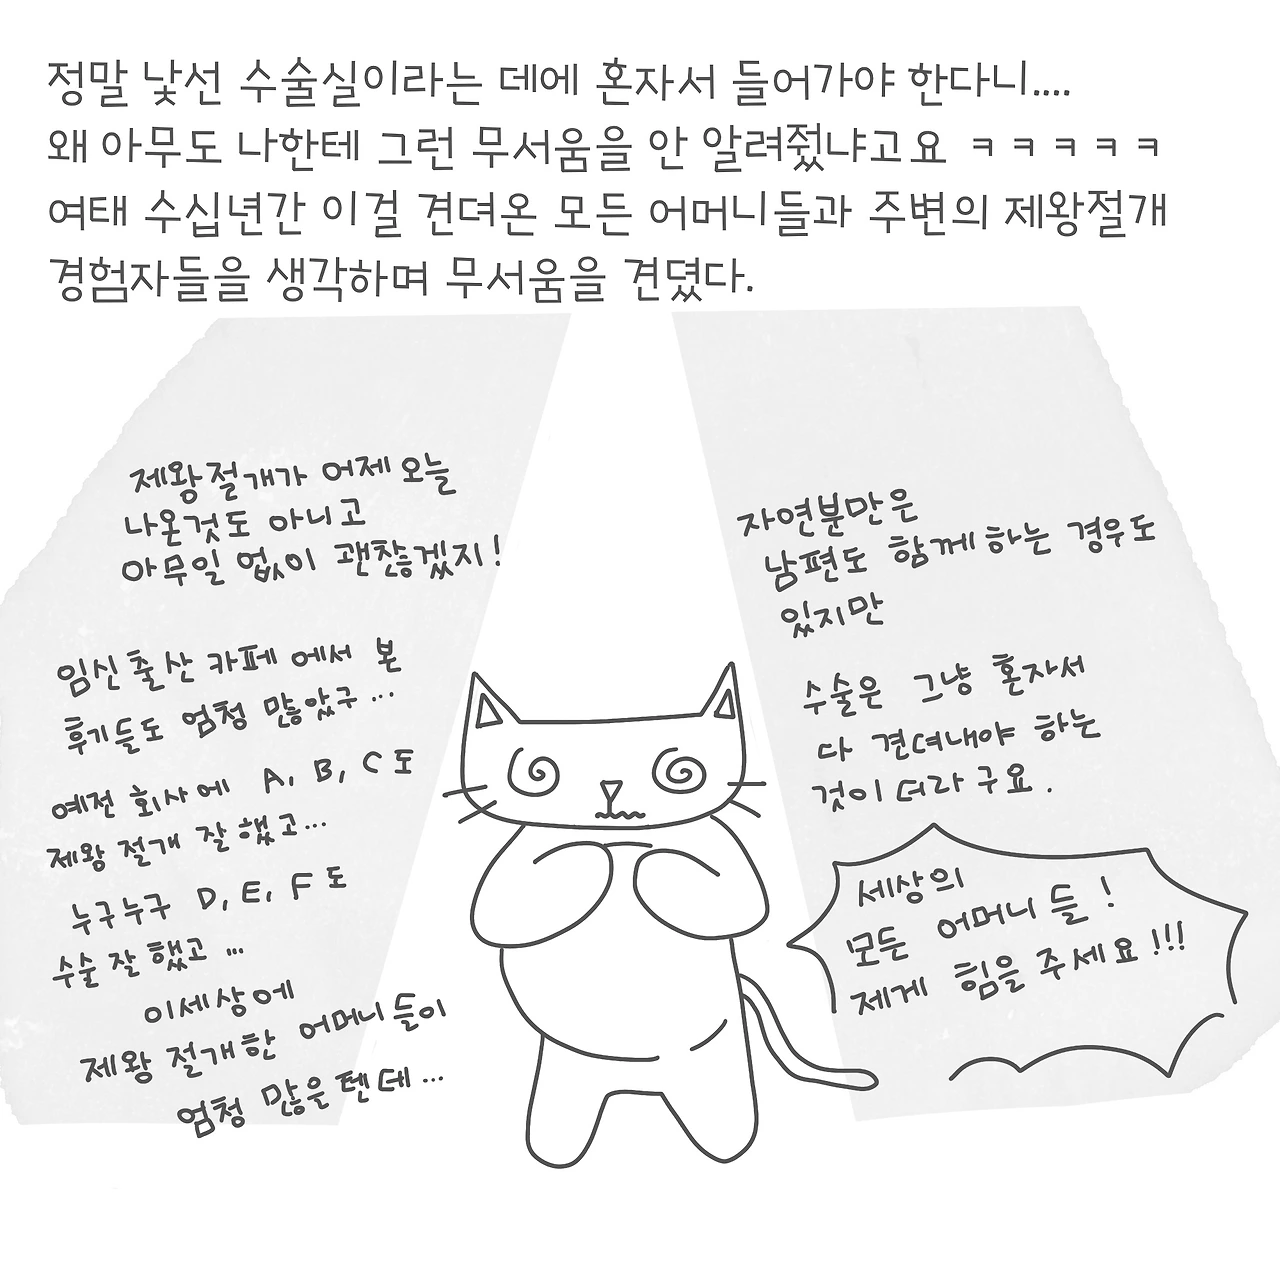 정말 낯선 수술실이라는 데에 혼자서 들어가야 한다니....
왜 아무도 나한테 그런 무서움을 안 알려줬냐고요 ㅋㅋㅋㅋㅋ
여태 수십년간 이걸 견뎌온 모든 어머니들과 주변의 제왕절개
경험자들을 생각하며 무서움을 견뎠다.
제왕절개가 어제 오늘
나온것도 아니고
아무일 없이 괜찮겠지!
임신출산 카페에서 본
후기들도 엄청 많았구...
예전 회사에 A, B, C도
제왕 절개 잘 했고...
누구누구 D, E, F도
수술 잘 했고...
이세상에
제왕 절개한 어머니들이
엄청 많은텐데...
자연분만은
남편도 함께하는 경우도
있지만
수술은 그냥 혼자서
다 견뎌내야 하는
것이더라구요.
세상의
모든 어머니들!
제게 힘을 주세요!!!